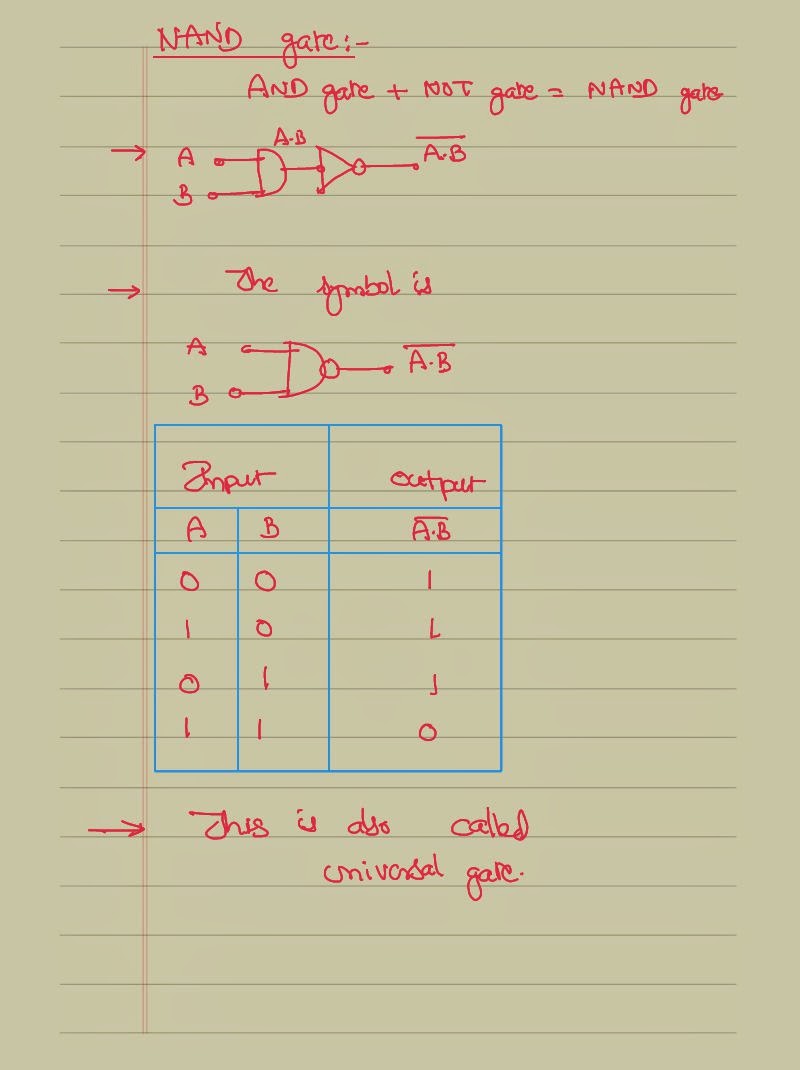 NAND gate:-
AND gate + NOT gate = NAND gate
→ A B A.B A̅.̅B̅
→ The symbol is
A B A̅.̅B̅
Input Output
A B A̅.̅B̅
0 0 1
1 0 1
0 1 1
1 1 0
→ This is also called
universal gate.